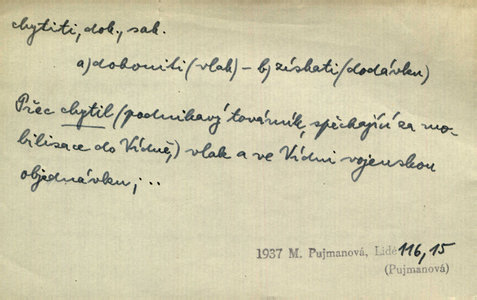 chytiti, dok., sak.
a) dohoniti (vlak) – b) získati (dodávku)
Přec chytil (podnikavý továrník, spěchající za mo-
bilisace do Vídně,) vlak a ve Vídni vojenskou
objednávku; ..
1937 M. Pujmanová, Lidé 116, 15
(Pujmanová)